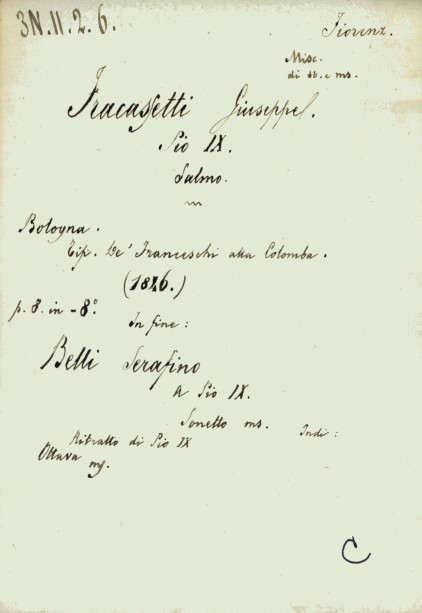 3N.II.2.6.
Fiorenz.
Misc.
di st. e ms.
Fracassetti Giuseppe.
Pio IX.
Salmo.
Bologna.
Tip. De' Franceschi alla Colomba.
(1846.)
p. 8. in-8°.
In fine:
Belli Serafino
A Pio IX.
Sonetto ms. Indi:
Ritratto di Pio IX
Ottava ms.
C